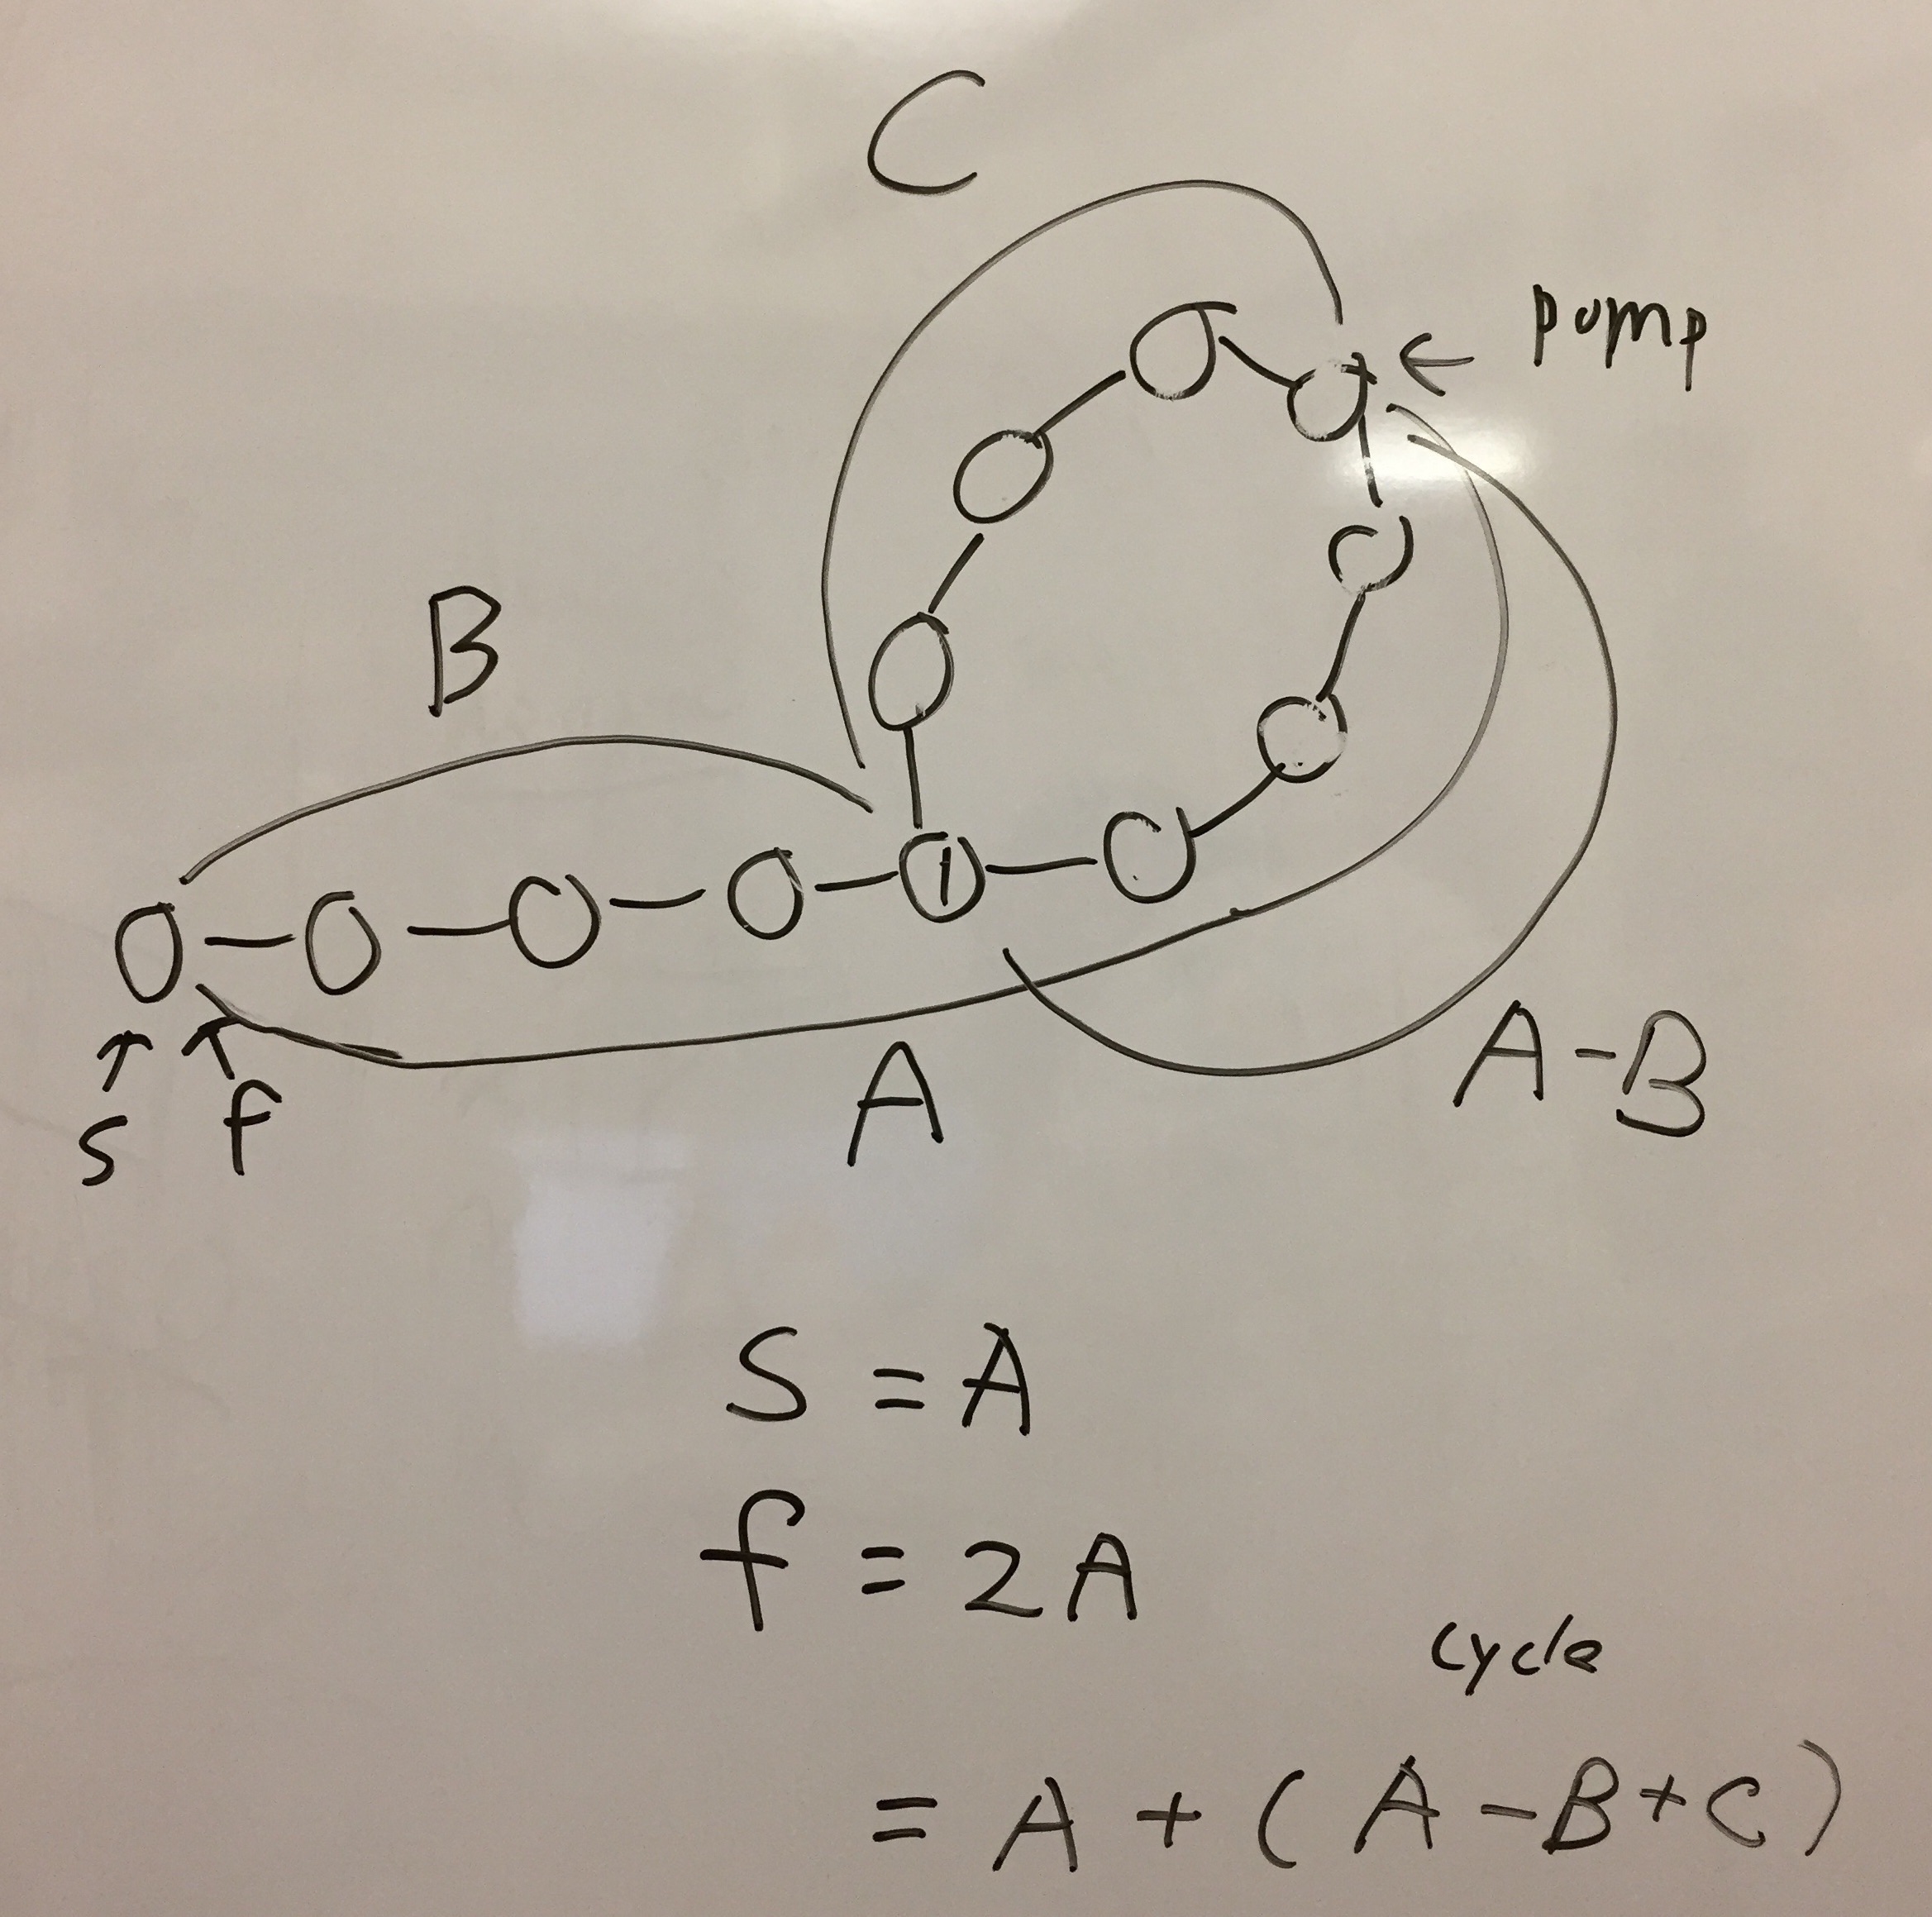 C
pump
B
1
A
A-B
s
f
S = A
f = 2A
cycle
= A + (A-B+C)